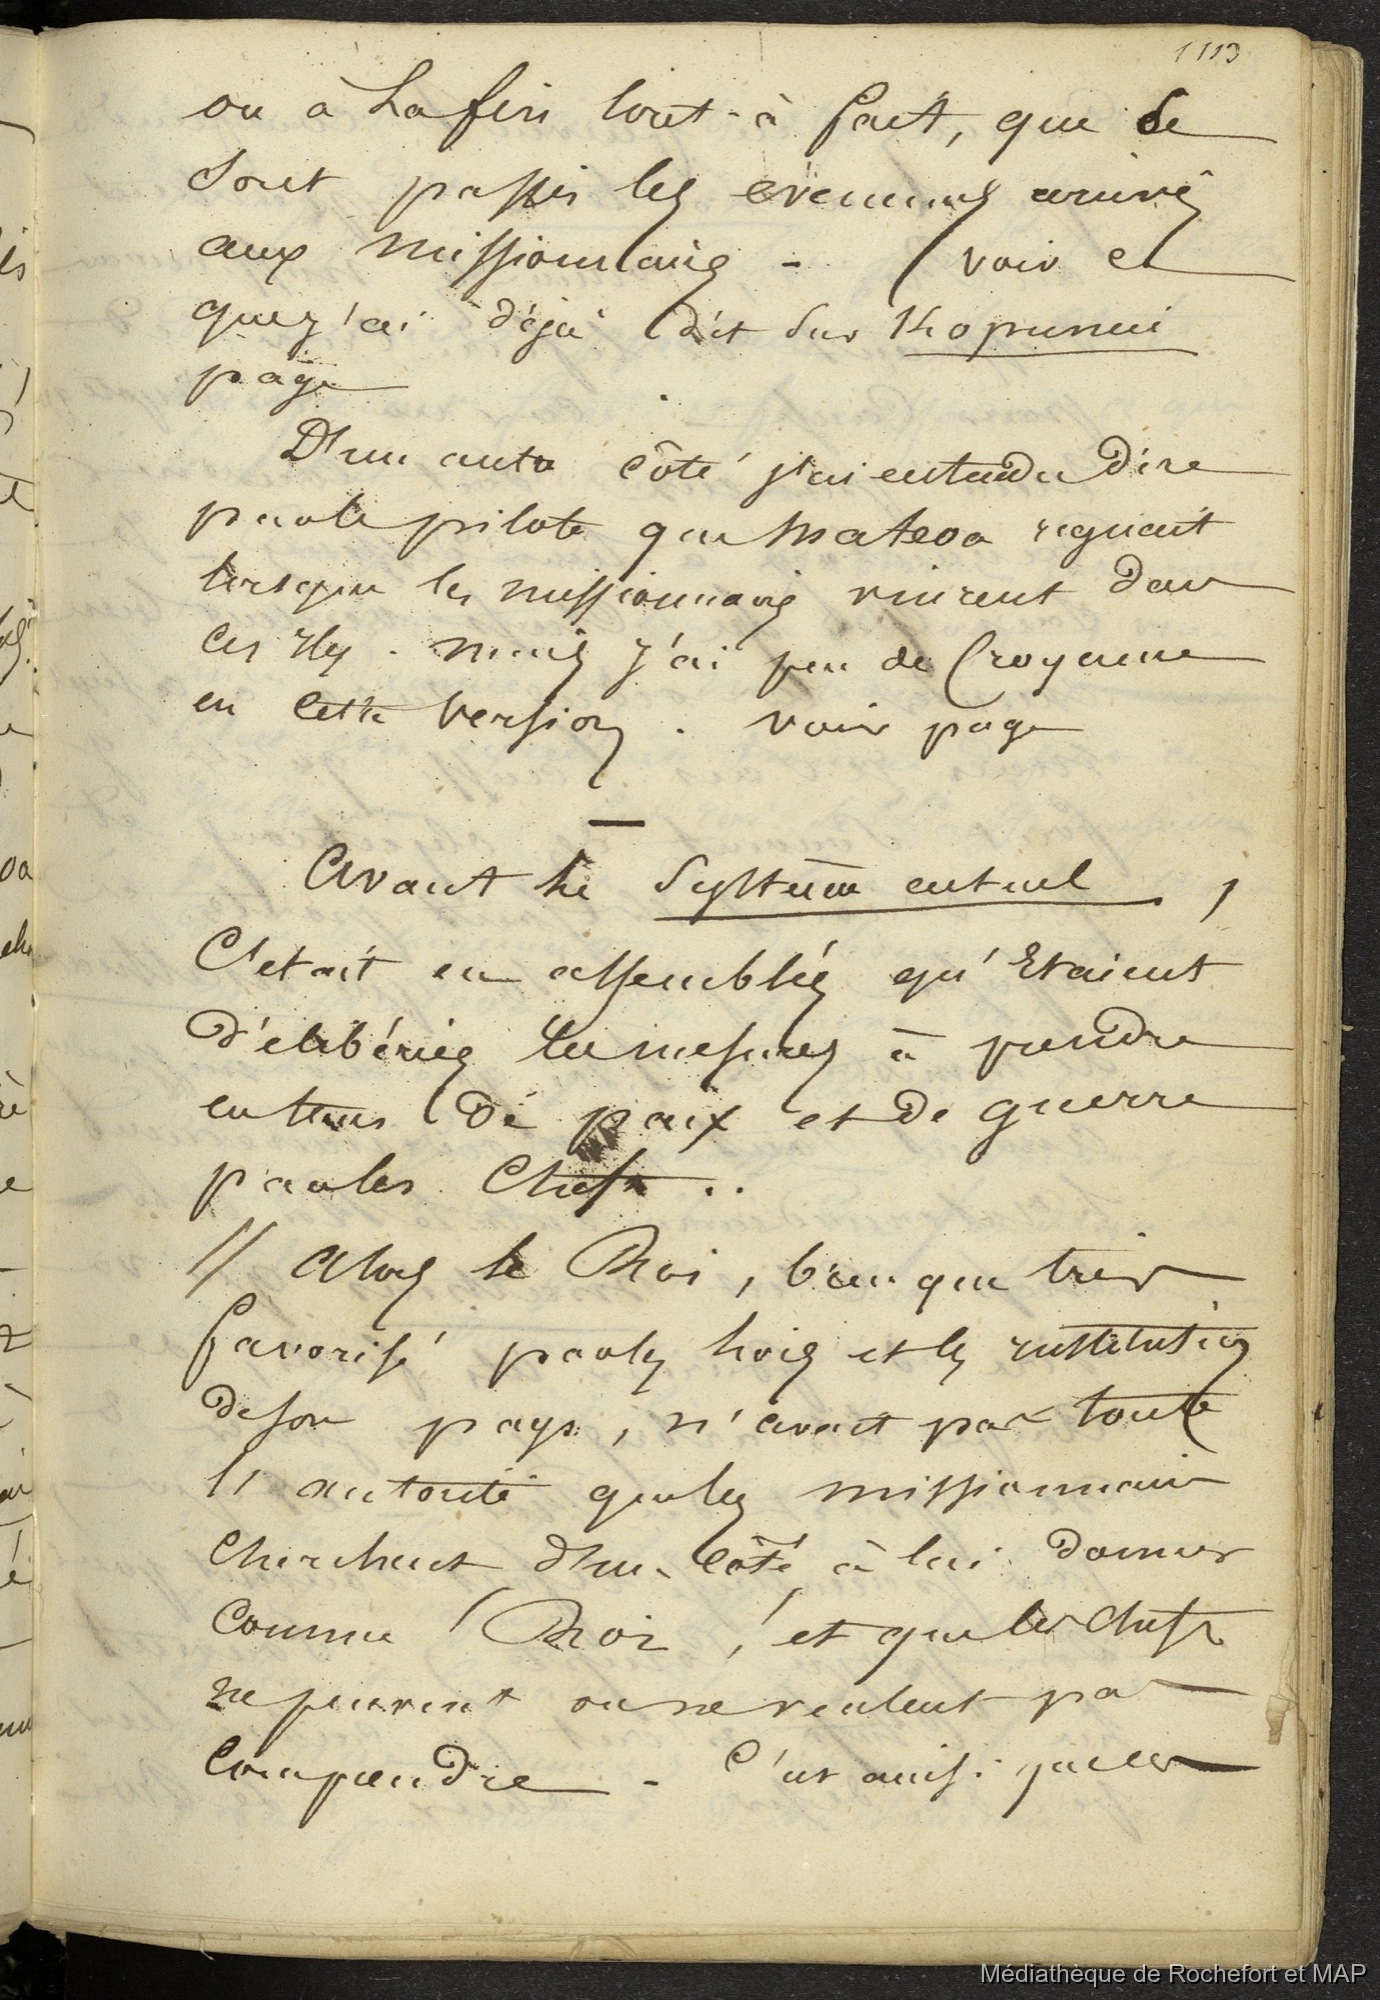 1113
ou à La fin tout-à fait, que se
sont passés les évenemens arrivés
aux missionnaires - voir ce
que j'ai déjà dit sur
page
D'un autre côté j'ai entendu dire
par le pilote que Mateoa regnait
lorsque les missionnaires vinrent dans
ces Iles. mais j'ai peu de croyance
en cette version. voir page
Avant le Système actuel,
C'etait en assemblées qu'Etaient
délibérées les mesures à prendre
en tems de paix et de guerre
par les Chefs..
// alors le Roi, bien que très
favorisé par les lois et les institutions
de son pays, n'avait pas toute
l'autorité que les missionnaires
cherchent d'un côté à lui donner
comme Roi, et que les chefs
ne peuvent ou ne veulent pas
comprendre - C'est ainsi que les
Médiathèque de Rochefort et MAP